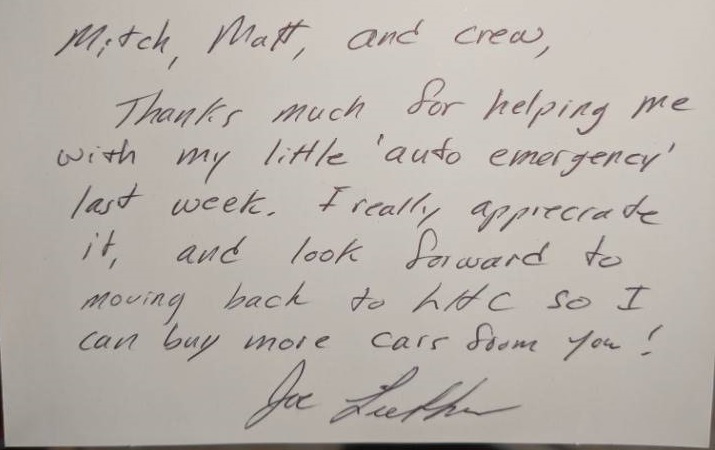 Mitch, Matt, and crew,
Thanks much for helping me
with my little 'auto emergency'
last week. I really appreciate
it, and look forward to
moving back to LHC so I
can buy more cars from you!
Joe